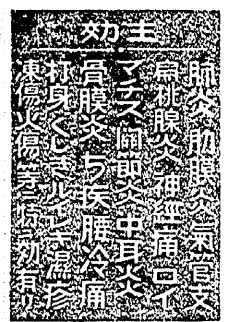 主効
肺炎肋膜炎氣管支
扁桃腺炎神經痛ロイ
マチス關節炎中耳炎
骨膜炎ぢ疾
打身くじき濕疹
凍傷火傷等ニ特効有リ